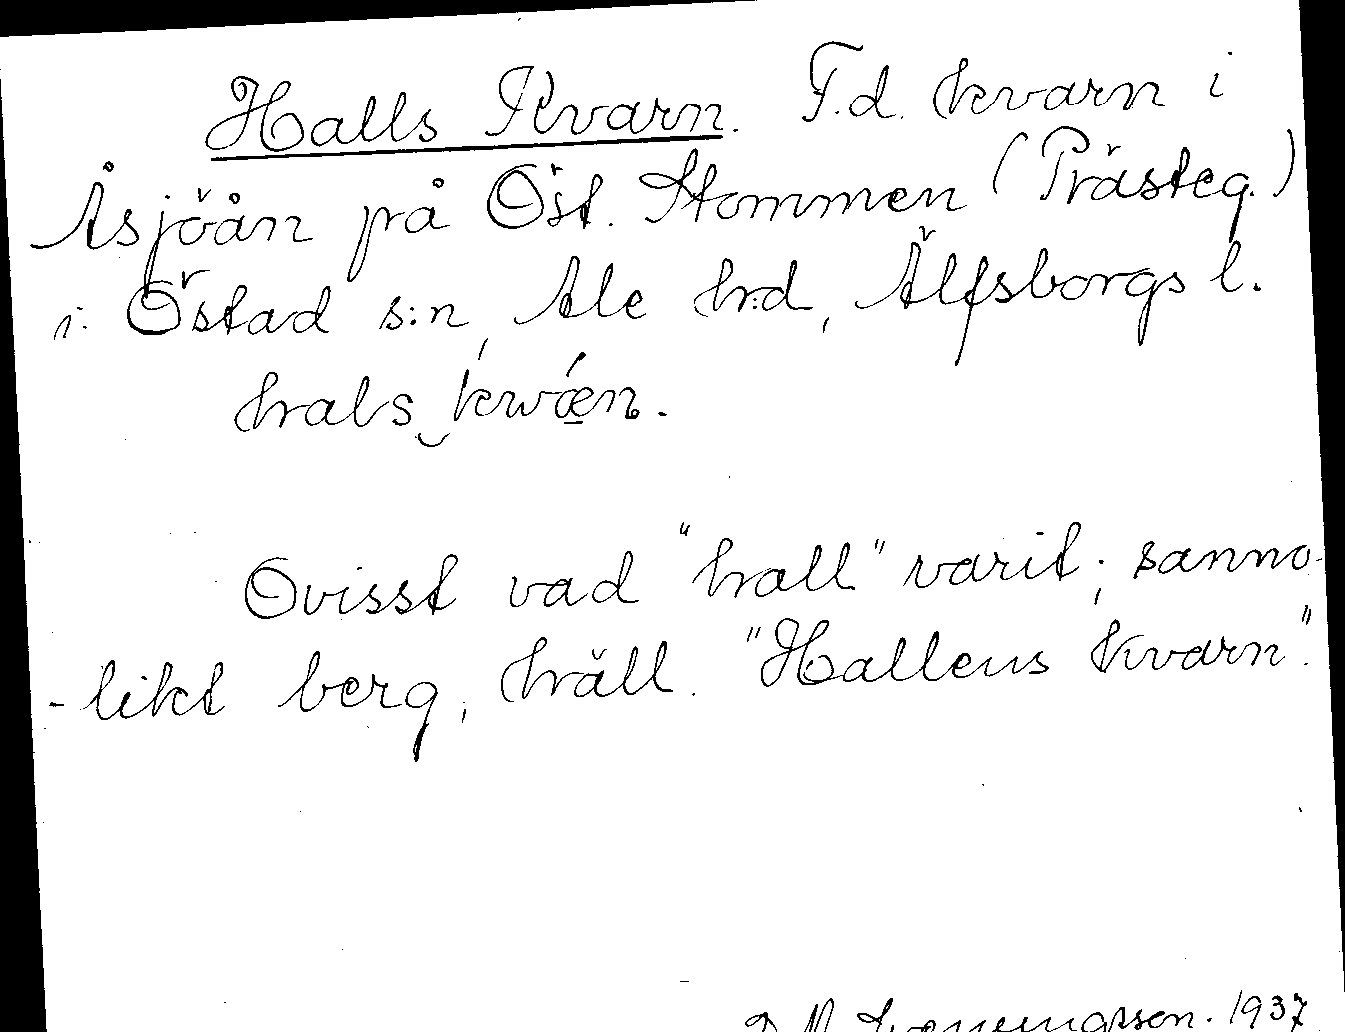 Halls Kvarn. F.d. kvarn i
Åsjöån på Öst. Stommen (Prästeg.)
i Östad s:n, Ale hrd, Älfsborgs l.
hals‿kwǽn.
Ovisst vad "hall" varit; sanno-
-likt berg, häll. "Hallens kvarn".
1937